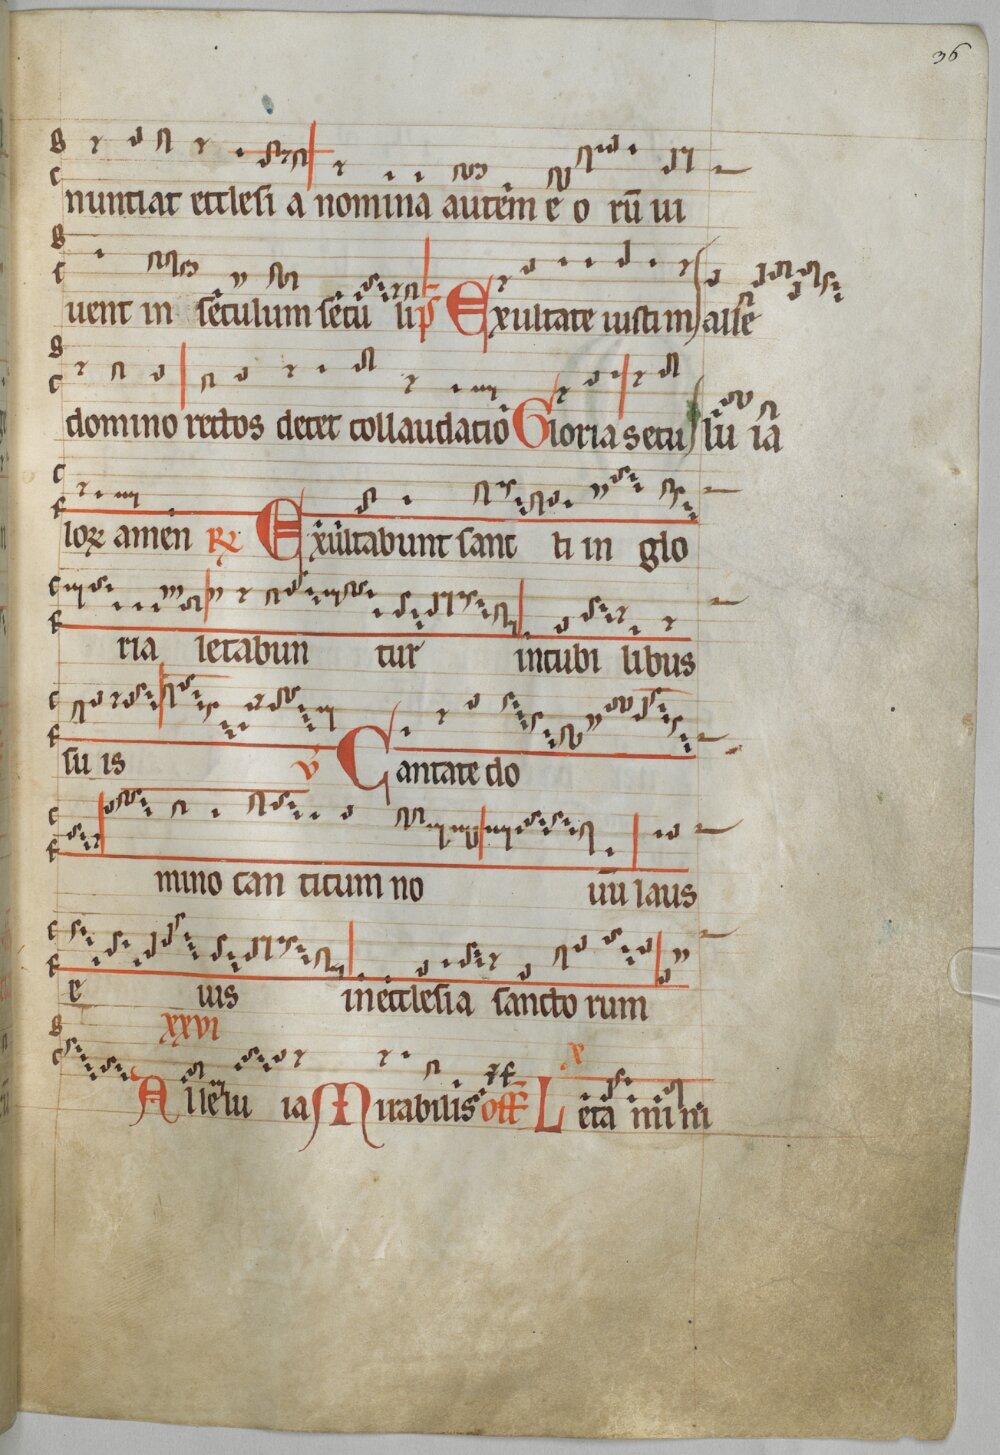 36
nuntiat ecclesi a nomina autem e o rū ui
uent in seculum secu li ps Exultate iusti in alle
domino rectos decet collaudatio Gloria secu lu ia
lorꝝ amen R Exultabunt sanc ti in glo
ria letabun tur in cubi libus
su is V Cantate do
mino can ticum no uū laus
e ius in ecclesia sancto rum
xxvi
Alle lu ia Mirabilis off Letamini ni